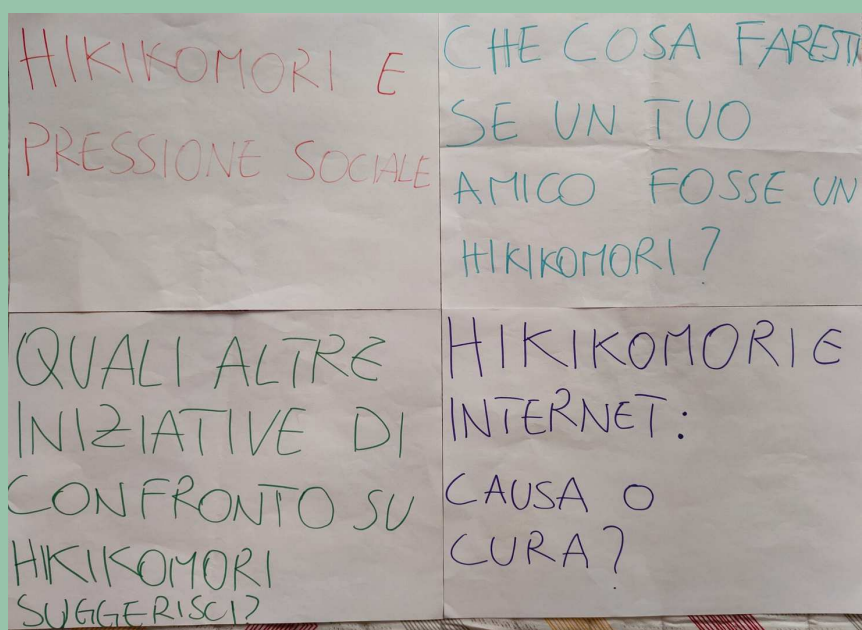 HIKIKOMORI E
PRESSIONE SOCIALE
CHE COSA FARESTI
SE UN TUO
AMICO FOSSE UN
HIKIKOMORI?
QUALI ALTRE
INIZIATIVE DI
CONFRONTO SU
HIKIKOMORI
SUGGERISCI?
HIKIKOMORI E
INTERNET:
CAUSA O
CURA?